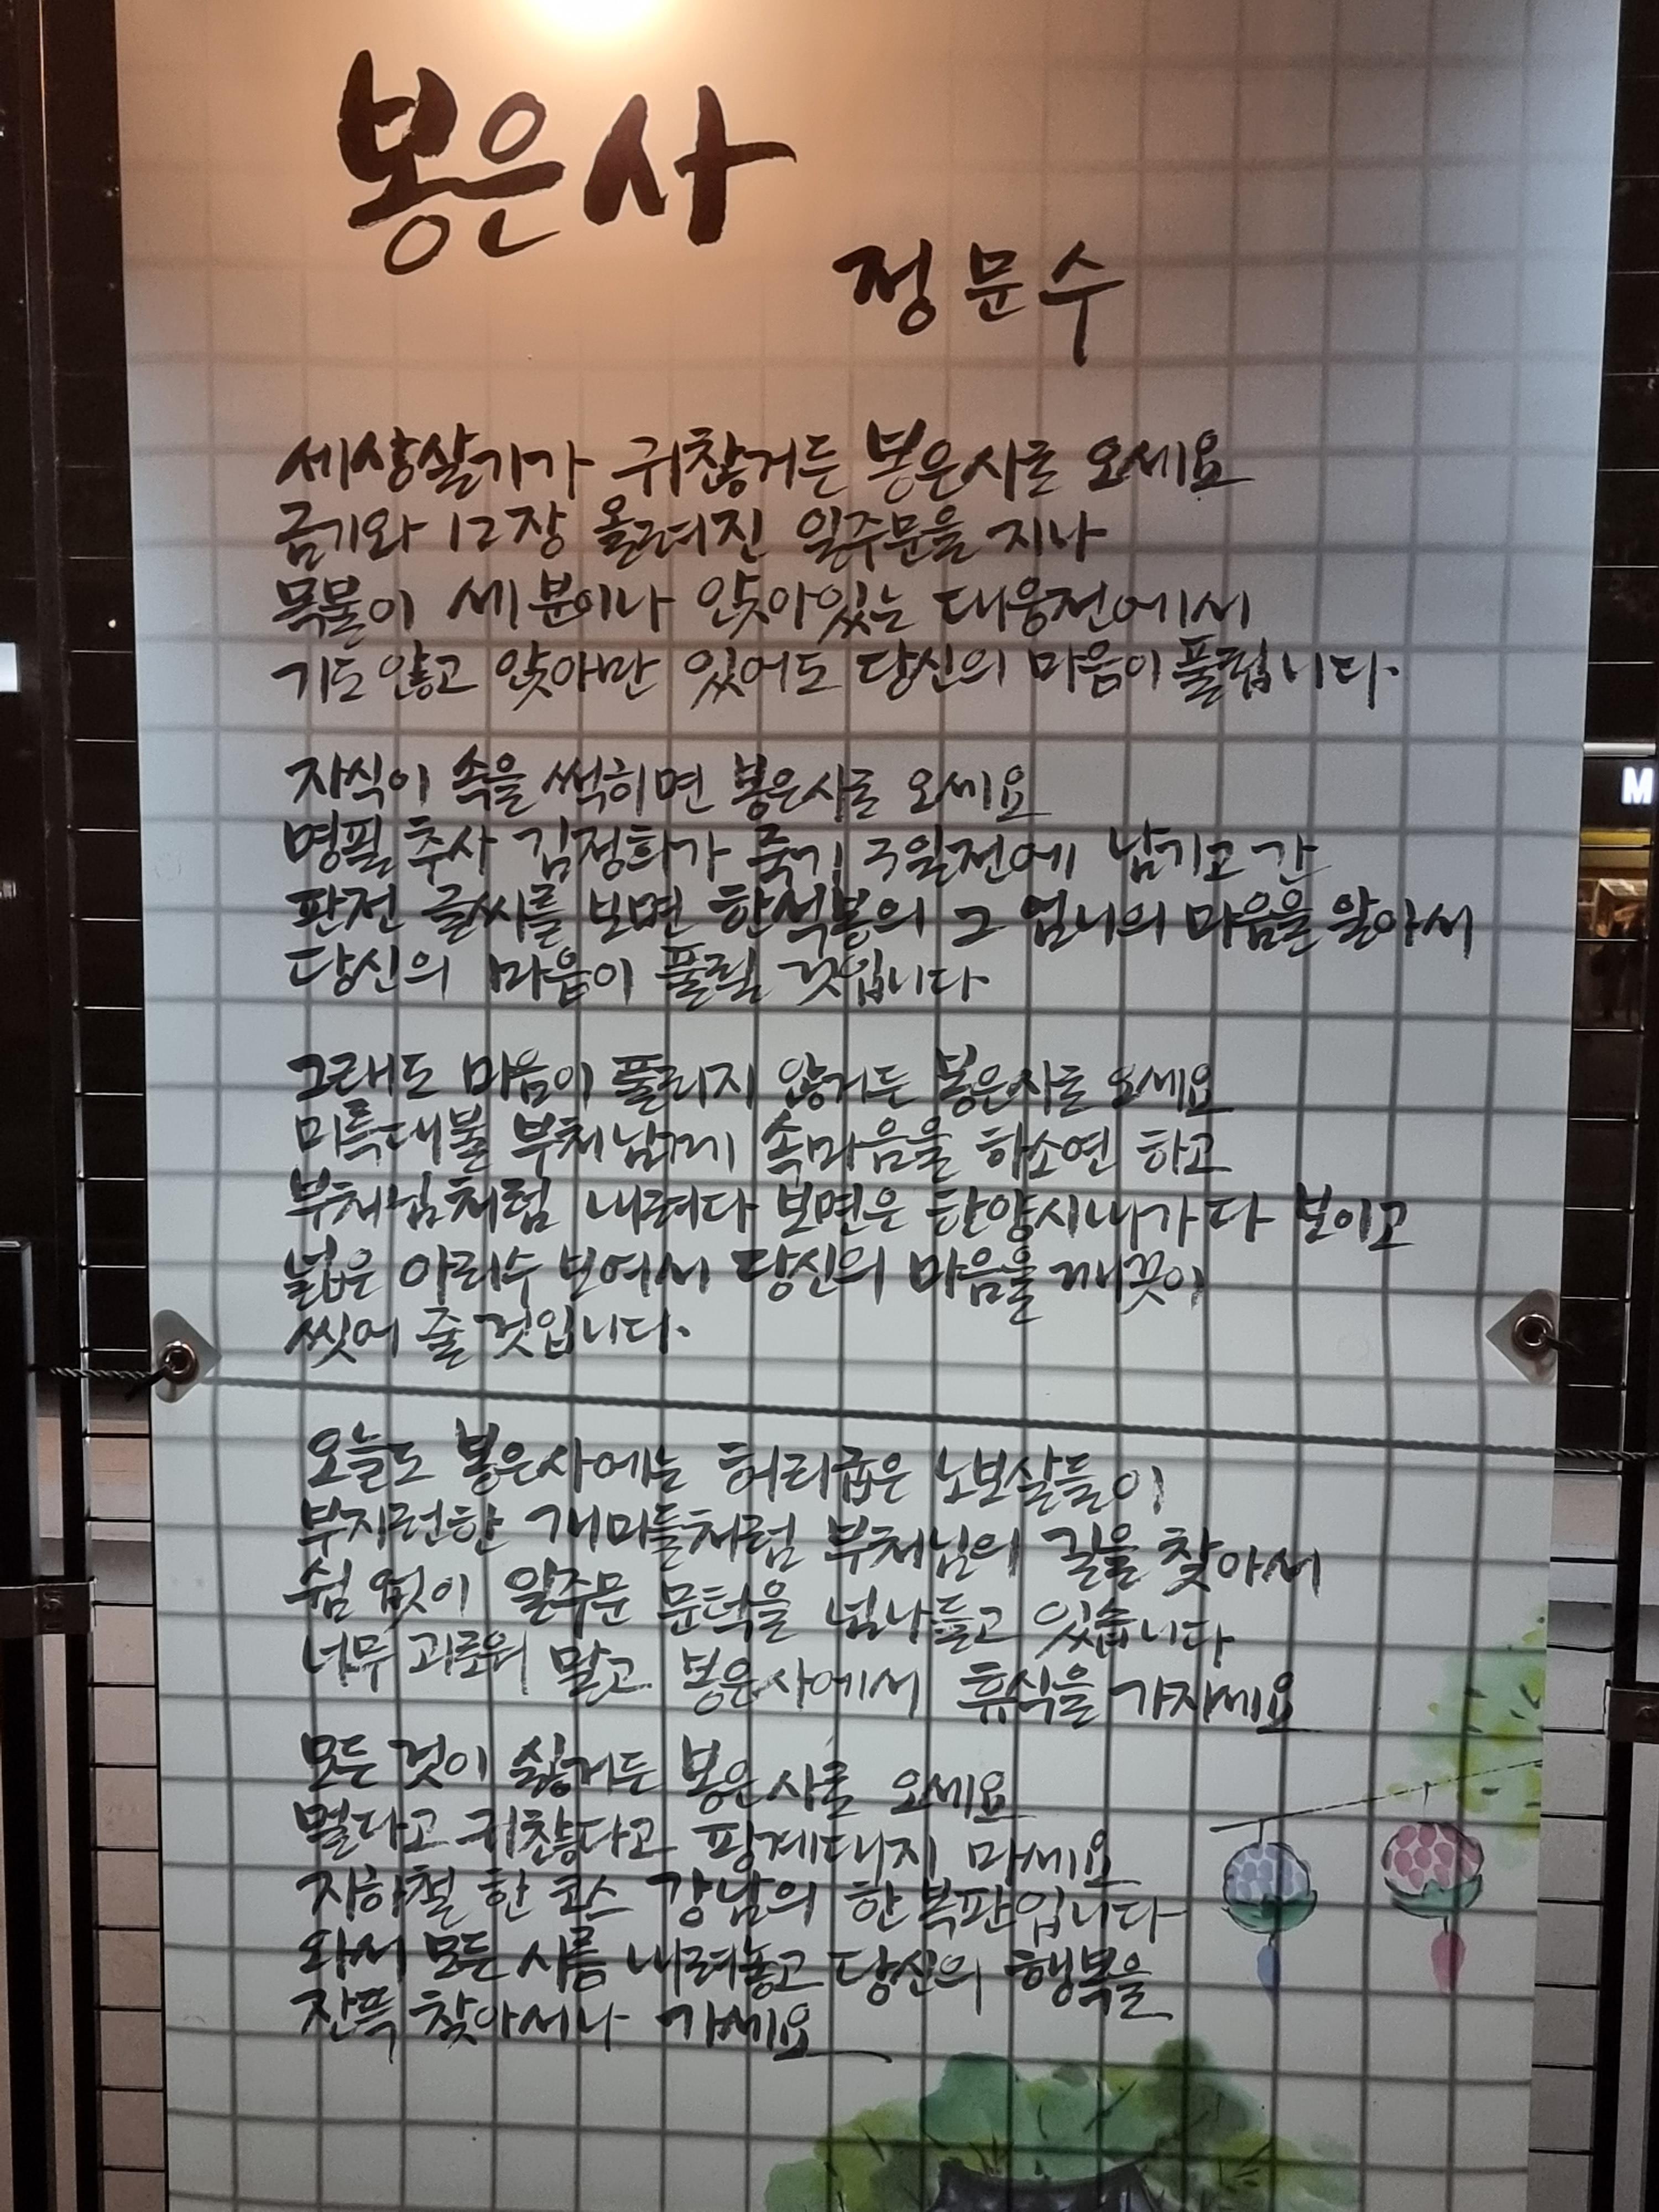 봉은사
정문수
세상살기가 귀찮거든 봉은사로 오세요
금기와 12장 올려진 일주문을 지나
목불이 세분이나 앉아있는 대웅전에서
기도 않고 앉아만 있어도 당신의 마음이 풀립니다.
자식이 속을 썩히면 봉은사로 오세요
명필 추사 김정희가 죽기 3일전에 남기고 간
판전 글씨를 보면 한석봉의 그 엄니의 마음을 알아서
당신의 마음이 풀릴 것입니다
그래도 마음이 풀리지 않거든 봉은사로 오세요
미륵대불 부처님께 속마음을 하소연 하고
부처님처럼 내려다 보면은 한양시내가 다 보이고
넓은 아리수 보여서 당신의 마음을 깨끗이
씻어 줄 것입니다.
오늘도 봉은사에는 허리굽은 노보살들이
부지런한 개미들처럼 부처님의 길을 찾아서
쉼 없이 일주문 문턱을 넘나들고 있습니다
너무 괴로워 말고 봉은사에서 휴식을 가지세요
모든 것이 싫거든 봉은사로 오세요
멀다고 귀찮다고 핑계대지 마세요
지하철 한 코스 강남의 한복판입니다
와서 모든 시름 내려놓고 당신의 행복을
잔뜩 찾아서나 가세요
M